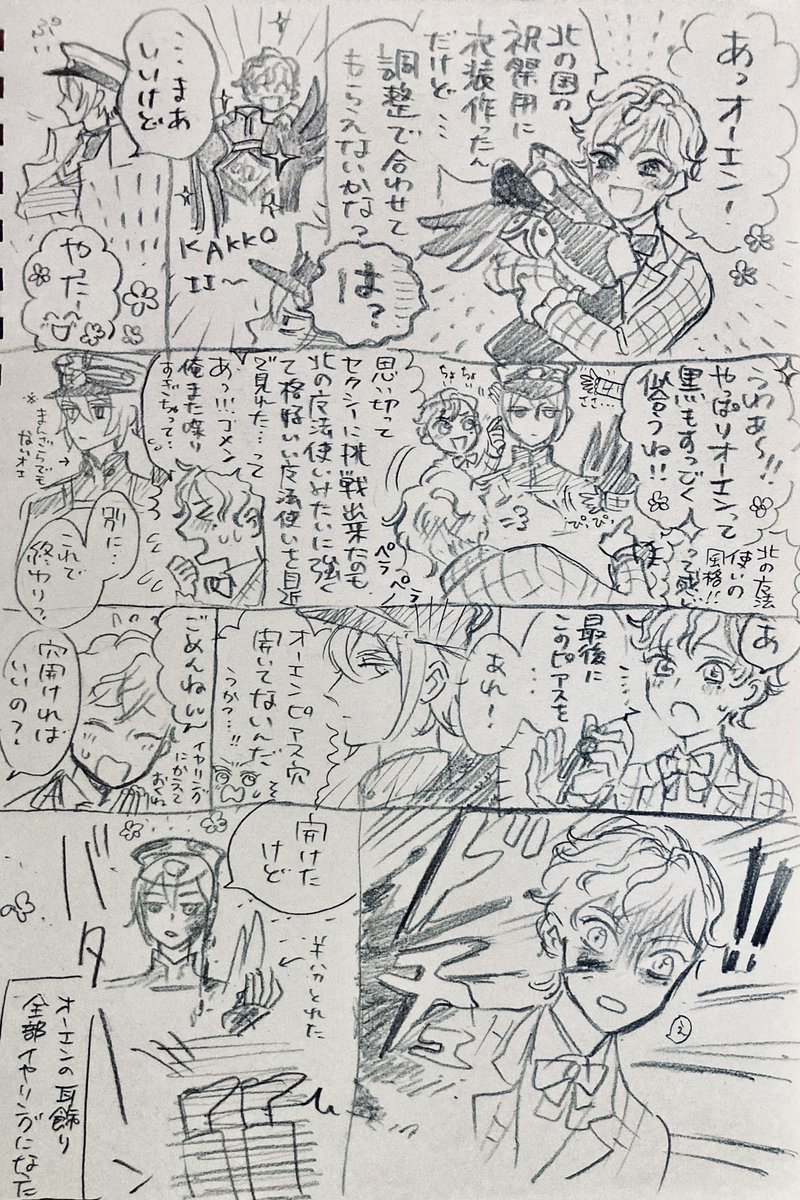 あっオーエン!
北の国の
祝祭用に
衣装作ったん
だけど…
調整で合わせて
もらえないかな?
は?
KAKKO
II〜
…まあ
いいけど
ぷい
やったー
うわぁ〜!!
やっぱりオーエンって
黒もすっごく
似合うね!!
北の魔法
使いの
風格!!
って感じ
ササ…
ちょい
ちょい
ぴっぴっ
思い切って
セクシーに挑戦出来たのも
北の魔法使いみたいに強く
て格好いい魔法使いを目近
で見れた…って
あっ!!ゴメン
俺また喋り
すぎちゃって…
ペラ
ペラ
※まんざらでも
ないオエ
別に…
これで
終わり?
あ
最後に
このピアスを
…
あれ!
オーエンピアス穴
開いてないんだ
っけ?…!!
ごめんねぇ
イヤリング
にかえて
おくね
穴開ければ
いいの?
!!
ブチ
え
開けた
けど
半分とれた
バタン
オーエンの耳飾り
全部イヤリングになった